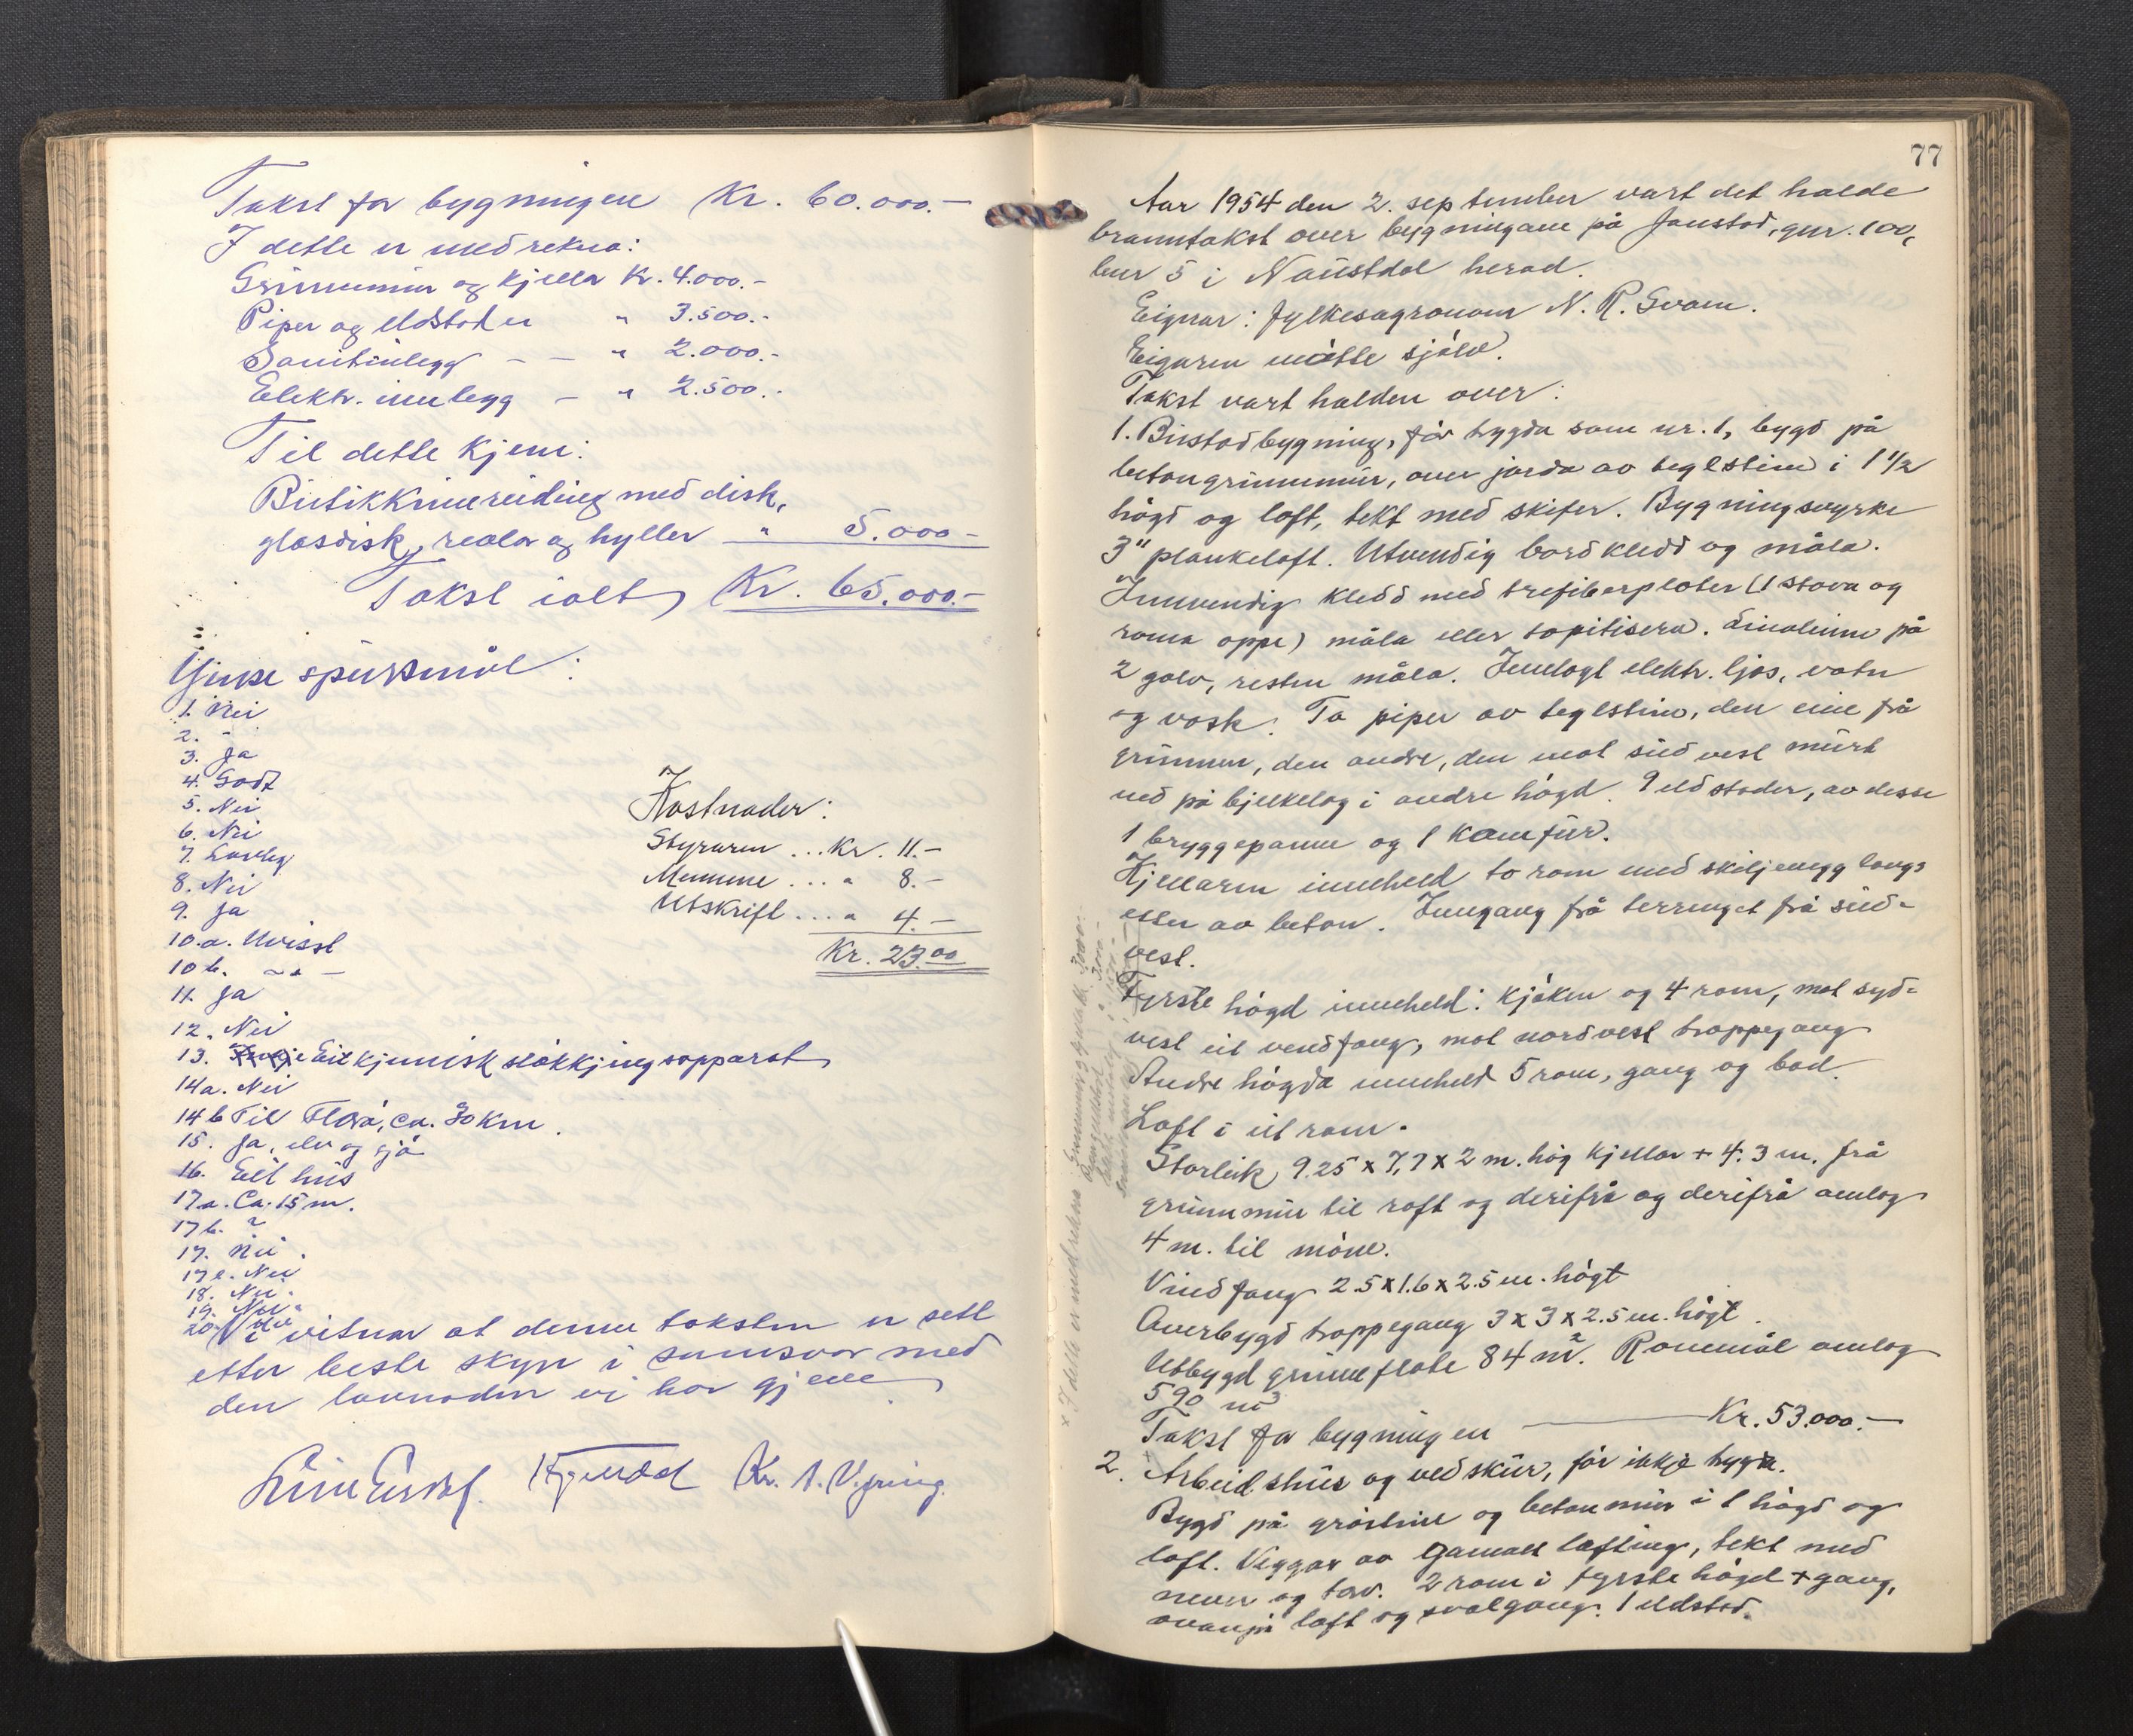 Takst for bygningen Kr. 60.000.-
I dette er medrekna:
Grunnmur og kjellar Kr. 4.000.-
Piper og eldstader " 3.500.-
Sanitærinlegg - - " 2.000.-
Elektr. innlegg - " 2.500.-
Til dette kjem:
Butikkinnreiding med disk,
glasdisk, reolar og hyller " 5.000 -
Takst ialt Kr. 65.000.-
Ymse spursmål:
1. Nei
2. -
3. Ja
4. Godt
5. Nei
6. Nei
7. Lovleg
8. Nei
9. Ja
10.a. Uvisst
10 b. - " -
11. Ja
12. Nei
13. Eit kjemisk sløkkjingsapparat
14a. Nei
14 b Til Florø, ca. 30 km.
15. Ja, elv og sjø
16. Eit hus
17a. Ca. 15 m.
17b. 2
17. Nei.
17e. Nei
18. Nei.
19. Nei.
20. Nei
Kostnader:
Styraren ... Kr. 11.-
Mennene ... " 8.-
Utskrift ... " 4.-
Kr. 23.00
Vi vitnar at denne taksten er sett
etter beste skyn i samsvar med
den lovnaden vi har gjeve.
Kr. A.
77
Aar 1954 den 2. september vart det halde
branntakst over bygningane på Jonstad, gnr. 100,
bnr 5 i Naustdal herad.
Eignar: fylkesagronom N. R. Svoen.
Eigaren møtte sjølv.
Takst vart halden over:
1. Bustadbygning, før trygda som nr. 1, bygd på
betongrunnmur, over jorda av teglstein i 1 1/2
høgd og loft, tekt med skifer. Bygningsvyrke
3" plankeloft. Utvendig bordkledd og måla.
Innvendig kledd med trefiberplater (1 stova og
roma oppe) måla eller tapitisera. Linoleum på
2 golv, resten måla. Innlagt elektr. ljos, vatn
og vask. To piper av teglstein, den eine frå
grunnen, den andre, den mot sudvest murt
ned på bjelkelag i andre høgd. 9 eldstader, av desse
1 bryggepanne og 1 kamfur.
Kjellaren inneheld to rom med skiljevegg langs
etter av beton. Inngang frå terrenget frå sud-
vest.
Fyrste høgd inneheld: kjøken og 4 rom, mot syd-
vest eit vindfang, mot nordvest trappegang
Andre høgda inneheld 5 rom, gang og bad.
Loft i eit rom.
Storleik 9.25 x 7,7 x 2 m. høg kjellar + 4.3 m. frå
grunnmur til raft og derifrå og derifrå omlag
4 m. til møne.
Vindfang 2.5 x 1.6 x 2.5 m. høgt
Overbygd trappegang 3 x 3 x 2.5 m. høgt.
Utbygd grunnflate 84 m². Rommål omlag
590 m³
Takst for bygningen Kr. 53.000.-
2. Arbeidshus og vedskur, før ikkje trygda.
Bygd på gråstein og betonmur i 1 høgd og
loft. Veggar av gamall lafting, tekt med
never og torv. 2 rom i fyrste høgd + gang,
ovanpå loft og svalgang. 1 eldstad.
x I dette er medrekna